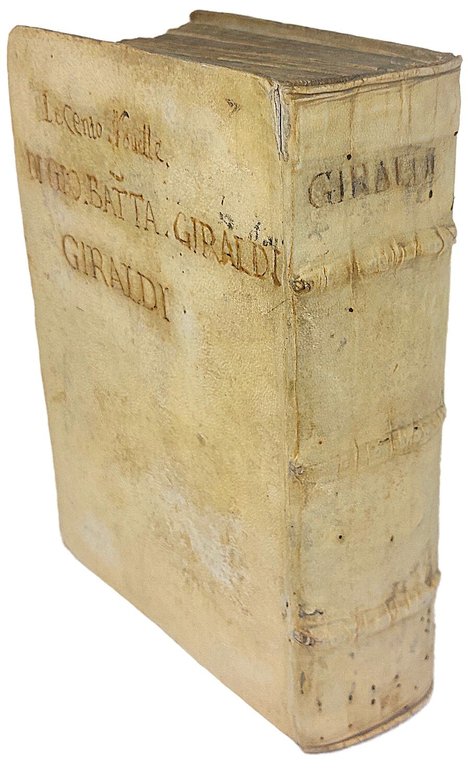 Le Cento Nouelle.
DI GIO. BATTA. GIRALDI
GIRALDI
GIRALDI